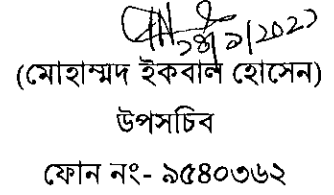 ২৪/১/২০২২
(মোহাম্মদ ইকবাল হোসেন)
উপসচিব
ফোন নং- ৯৫৪০৩৬২